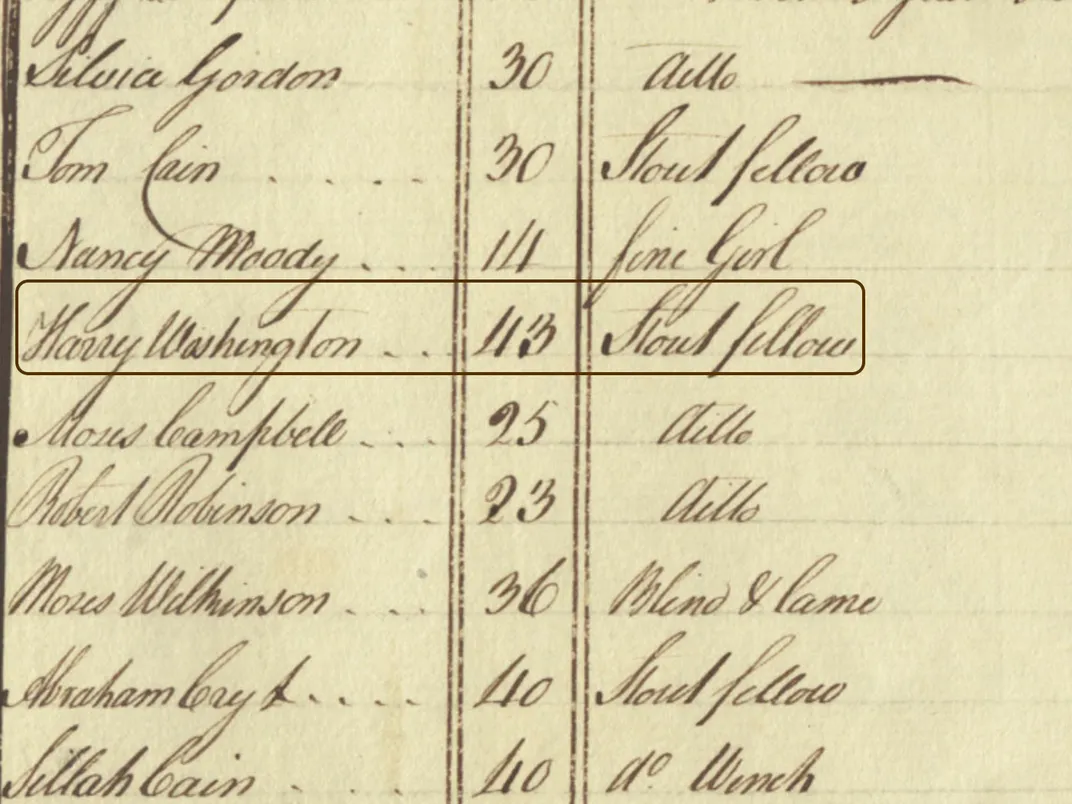 Silvia Gordon 30 ditto
Tom Cain . . . . . 30 Stout fellow
Nancy Moody . . . 14 fine Girl
Harry Washington . . . 43 Stout fellow
Moses Campbell . . . 25 ditto
Robert Robinson . . . . 23 ditto
Moses Wilkinson . . . 36 Blind & lame
Abraham . . . . 40 Stout fellow
Sillah Cain . . . 40 do Wench